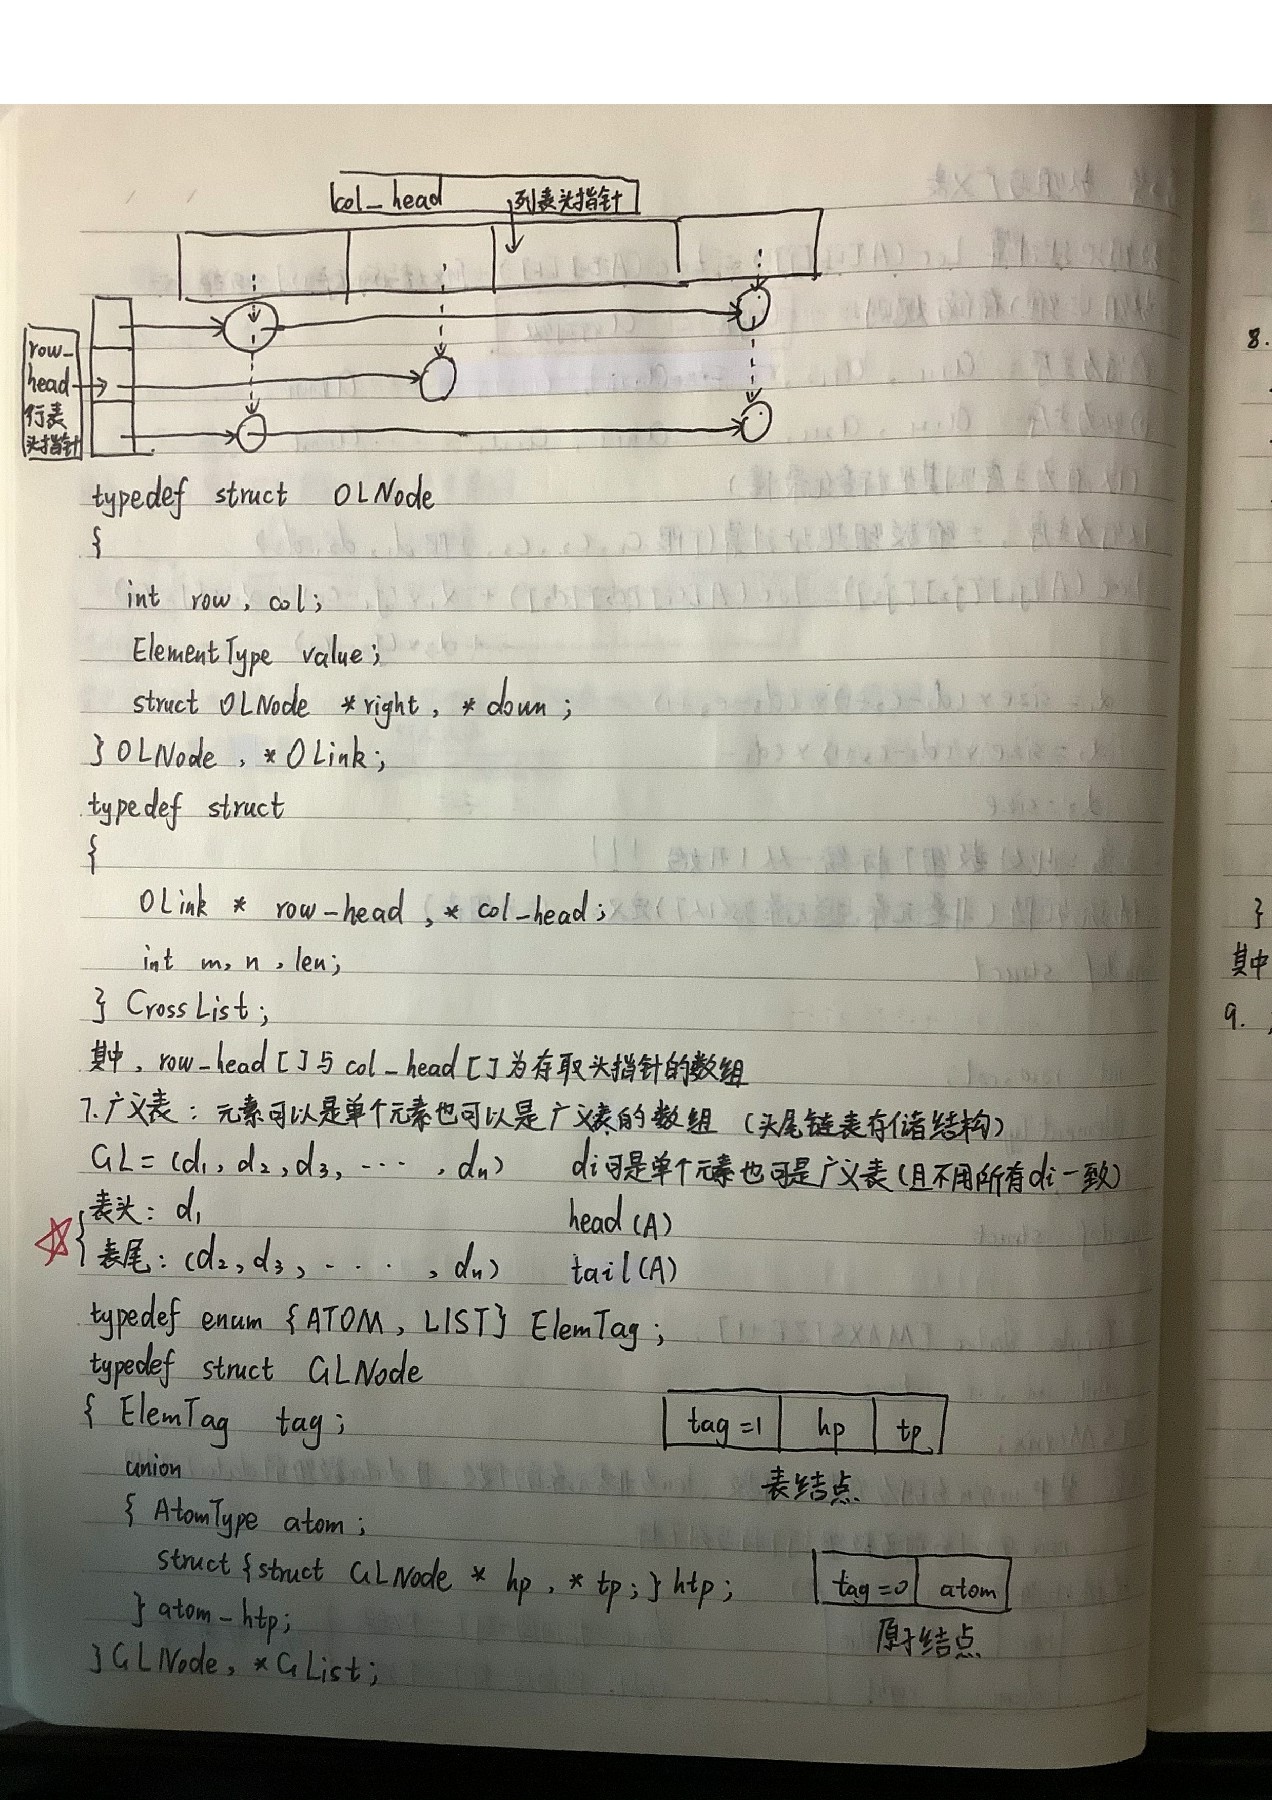 col_head 列表头指针
row_
head
行表
头指针
typedef struct OLNode
{
int row, col;
ElementType value;
struct OLNode *right, *down;
} OLNode, *OLink;
typedef struct
{
OLink * row_head, * col_head;
int m, n, len;
} CrossList;
其中, row_head[]与col_head[]为存取头指针的数组
7. 广义表: 元素可以是单个元素也可以是广义表的数组 (头尾链表存储结构)
GL=(d1, d2, d3, ···· , dn) di可是单个元素也可是广义表(且不用所有di一致)
表头: d1 head(A)
表尾: (d2, d3, ···· , dn) tail(A)
typedef enum {ATOM, LIST} ElemTag;
typedef struct GLNode
{ ElemTag tag;
tag=1 hp tp
union
表结点
{ AtomType atom;
struct {struct GLNode * hp, * tp;} htp;
tag=0 atom
} atom_htp;
原子结点
} GLNode, *GList;
8.
}
其中
9.